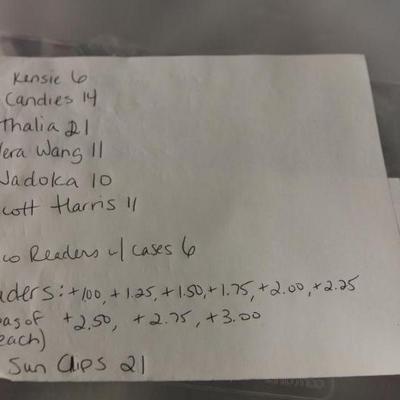 Kensie 6
Candies 14
Thalia 21
Vera Wang 11
Nadoka 10
cott Harris 11
co Readers w/ cases 6
aders: +100, +1.25, +1.50, +1.75, +2.00, +2.25
+2.50, +2.75, +3.00
each)
Sun Clips 21